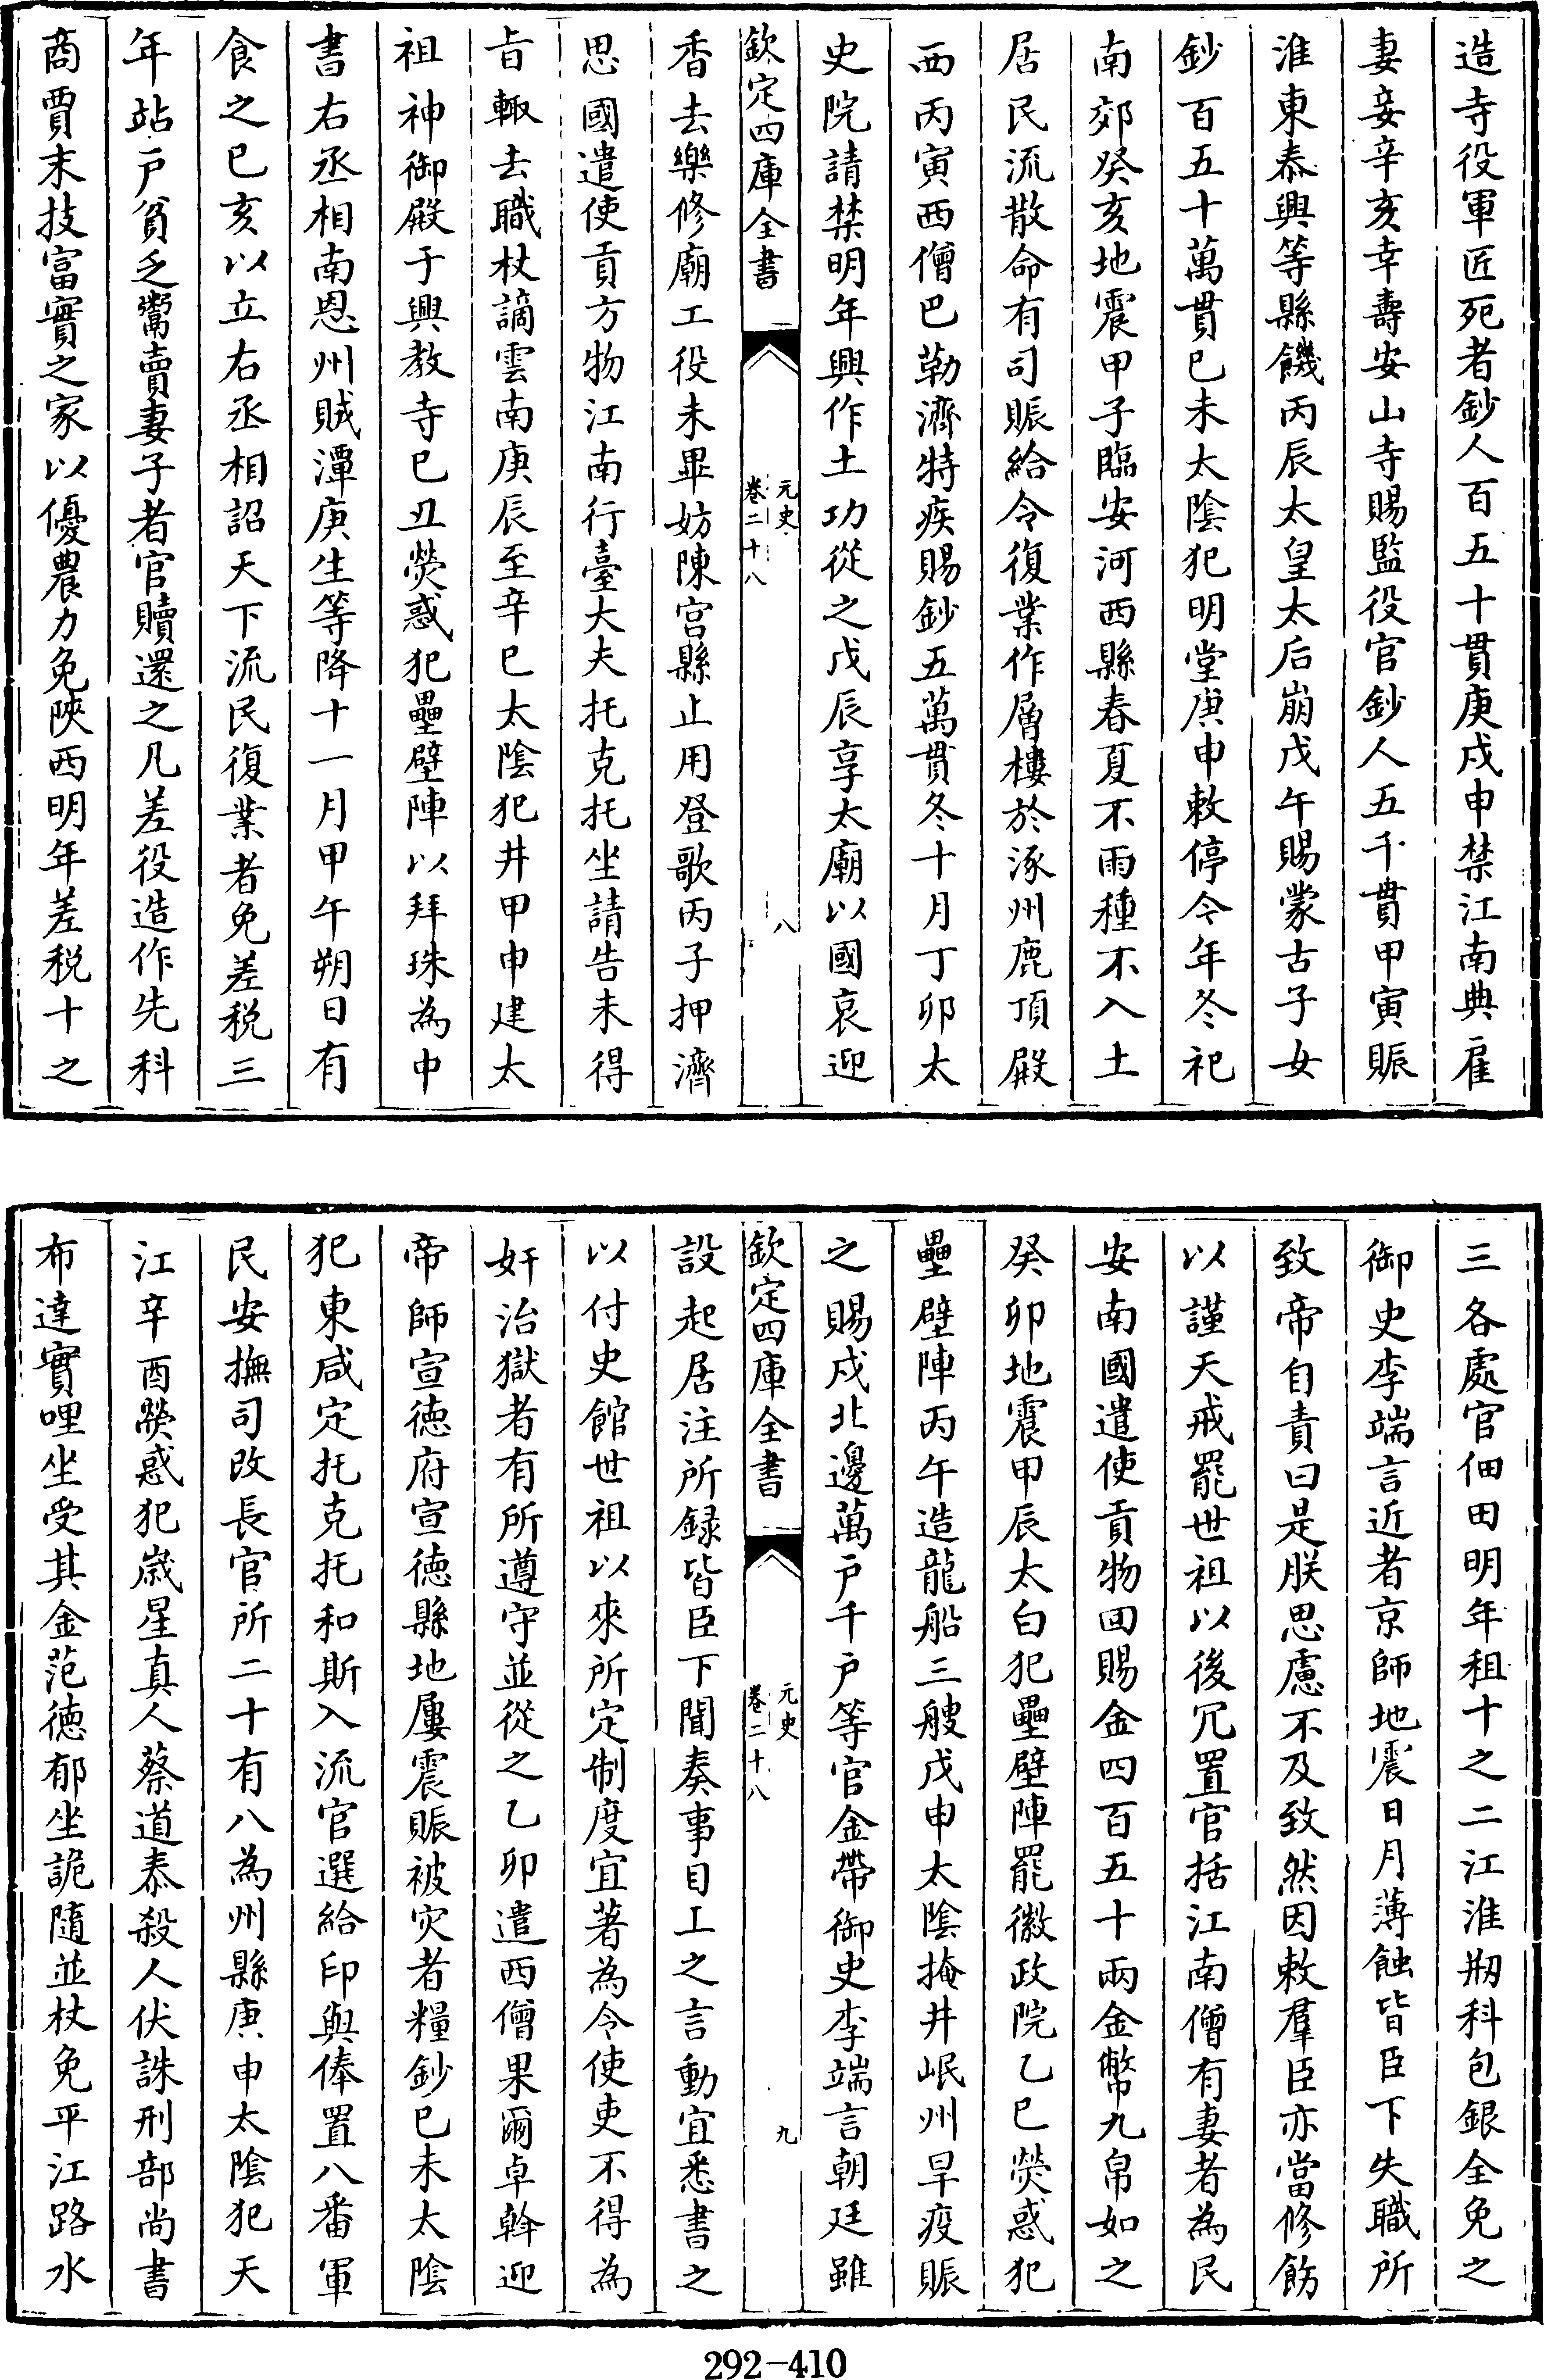 造寺役軍匠死者鈔人百五十貫庚戍申禁江南典雇
妻妾辛亥幸壽安山寺賜監役官鈔人五千貫甲寅賑
淮東泰興等縣饑丙辰太皇太后崩戊午賜蒙古子女
鈔百五十萬貫已未太陰犯明堂庚申敕停今年冬祀
南郊癸亥地震甲子臨安河西縣春夏不雨種不入土
居民流散命有司賑給令復業作層樓於涿州鹿頂殿
西丙寅西僧巴勒濟特疾賜鈔五萬貫冬十月丁卯太
史院請禁明年興作土功從之戊辰享太廟以國哀迎
欽定四庫全書 元史 卷二十八 八
香去樂修廟工役未畢妨陳宫縣止用登歌丙子押濟
思國遣使貢方物江南行臺大夫托克托坐請告未得
㫖輙去職杖謫雲南庚辰至辛巳太陰犯井甲申建太
祖神御殿于興教寺已丑熒惑犯壘壁陣以拜珠為中
書右丞相南恩州賊潭庚生等降十一月甲午朔日有
食之已亥以立右丞相詔天下流民復業者免差税三
年站户貧乏鬻賣妻子者官贖還之凡差役造作先科
商賈末技富實之家以優農力免陜西明年差税十之
三各處官佃田明年租十之二江淮剏科包銀全免之
御史李端言近者京師地震日月薄蝕皆臣下失職所
致帝自責曰是朕思慮不及致然因敕羣臣亦當修飭
以謹天戒罷世祖以後冗置官括江南僧有妻者為民
安南國遣使貢物回賜金四百五十兩金幣九帛如之
癸卯地震甲辰太白犯壘壁陣罷徽政院乙巳熒惑犯
壘壁陣丙午造龍船三艘戊申太陰掩井岷州旱疫賑
之賜戍北邊萬户千户等官金帶御史李端言朝廷雖
欽定四庫全書 元史 卷二十八 九
設起居注所録皆臣下聞奏事目上之言動宜悉書之
以付史館世祖以來所定制度宜著為令使吏不得為
奸治獄者有所遵守並從之乙卯遣西僧果爾卓斡迎
帝師宣徳府宣徳縣地屢震賑被灾者糧鈔已未太陰
犯東咸定托克托和斯入流官選給印與俸置八番軍
民安撫司改長官所二十有八為州縣庚申太陰犯天
江辛酉熒惑犯歲星真人蔡道泰殺人伏誅刑部尚書
布達實哩坐受其金范徳郁坐詭隨並杖免平江路水
292-410